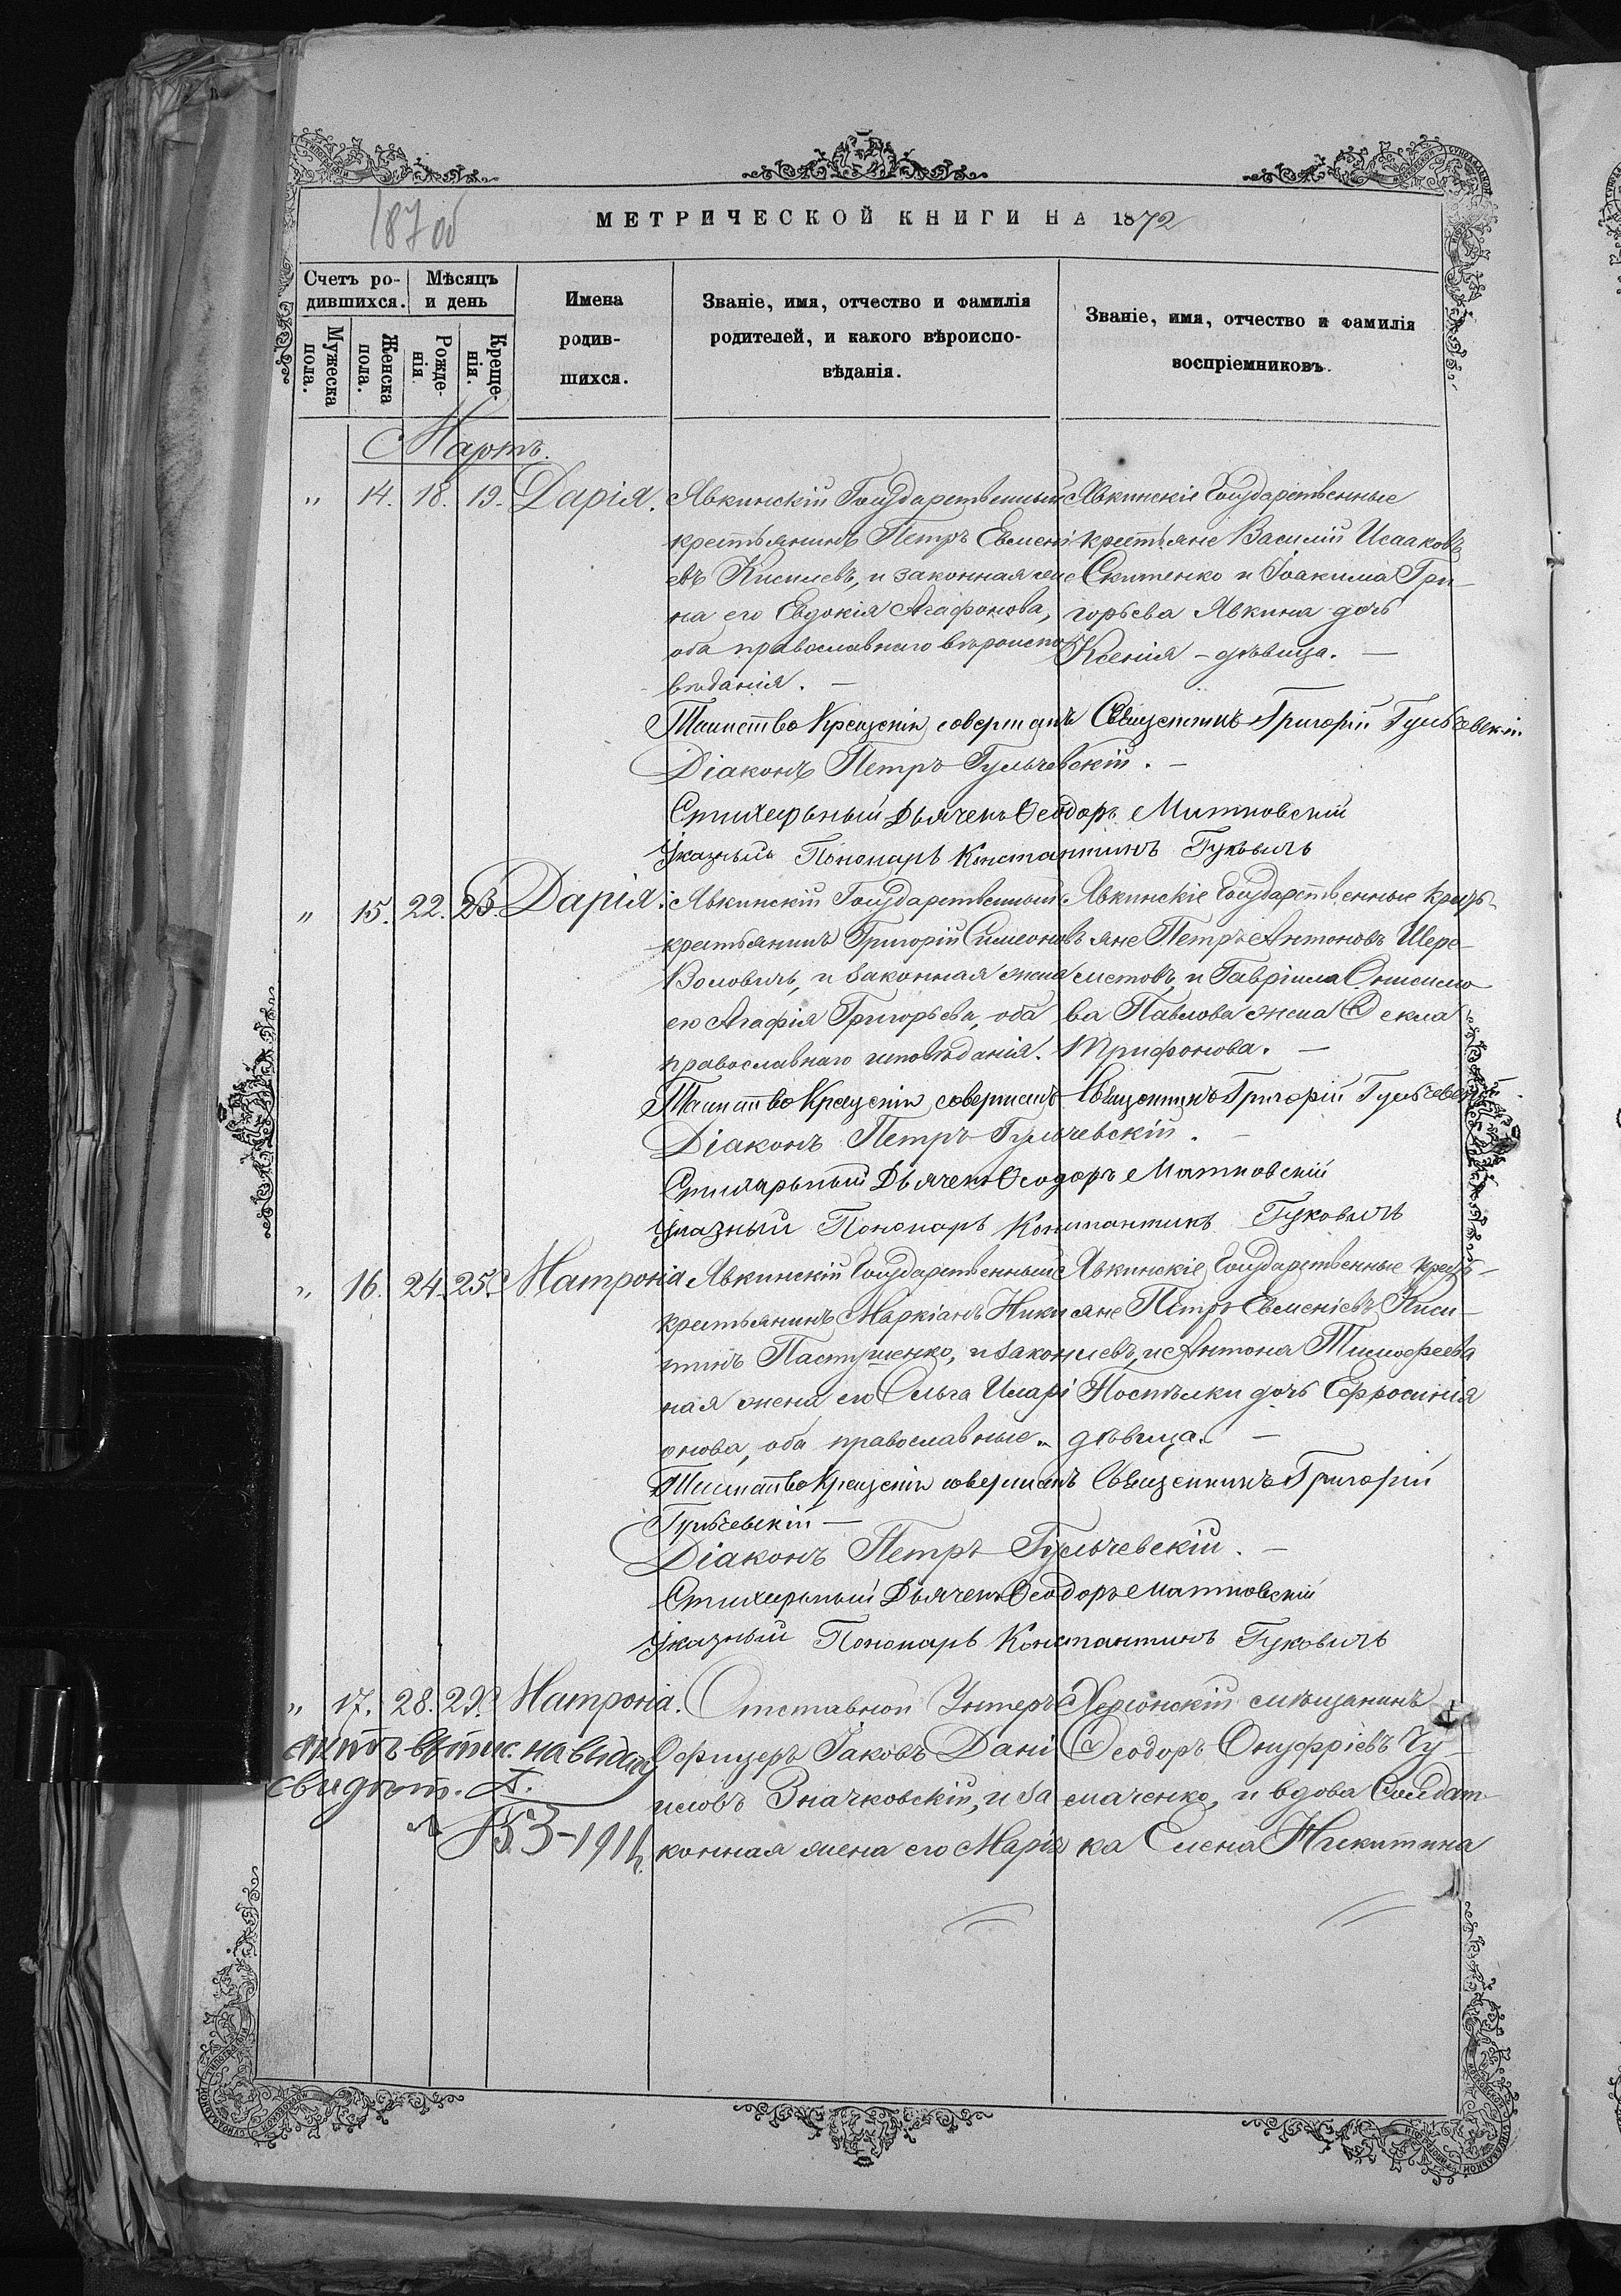 МЕТРИЧЕСКОЙ КНИГИ НА 1872
187 об
Счетъ ро-
дившихся.
Мѣсяцъ
и день
Мужеска
пола.
Женска
пола.
Рожде-
нія
Креще-
нія.
Имена
родив-
шихся.
Званіе, имя, отчество и фамилія
родителей, и какого вѣроиспо-
вѣданія.
Званіе, имя, отчество и фамилія
воспріемниковъ.
Мартъ.
„ 14. 18. 19. Дарія.
Явкинскій Государственный
крестьянинъ Петръ Евмені
евъ Кисилевъ, и законная же
на его Евдокія Агафонова,
оба православнаго вѣроиспо
вѣданія. —
Явкинскіе Государственные
крестьяне Василій Исааковъ
Скитенко и Іоакима Гри-
горьева Явкина дочь
Ксенія - дѣвица. —
Таинство Крещенія совершалъ Священникъ Григорій Гульчевскій.
Діаконъ Петръ Гульчевскій. —
Стихарьный Дьячекъ Ѳеодоръ Митковскій
Указный Пономарь Константинъ Гуковичъ
„ 15. 22. 23. Дарія.
Явкинскій Государственный
крестьянинъ Григорій Симеоновъ
Воловичъ, и законная жена
его Агафія Григорьева, оба
православнаго исповѣданія.
Явкинскіе Государственные кресть-
яне Петръ Антоновъ Шере-
метовъ, и Гавріила Онисимо
ва Павлова жена Ѳекла
Трифонова. —
Таинство Крещенія совершалъ Священникъ Григорій Гульчевскій.
Діаконъ Петръ Гульчевскій. —
Стихарьный Дьячекъ Ѳеодоръ Митковскій
Указный Пономарь Константинъ Гуковичъ
„ 16. 24. 25. Матронія
Явкинскій Государственный
крестьянинъ Маркіанъ Ники
тинъ Пастушенко, и закон
ная жена его Ольга Илларі
онова, оба православные.
Явкинскіе Государственные кресть-
яне Петръ Евменіевъ Киси-
левъ, и Антона Тимофеева
Постѣлки дочь Ефросинія
дѣвица. —
Таинство Крещенія совершалъ Священникъ Григорій
Гульчевскій —
Діаконъ Петръ Гульчевскій. —
Стихарьный Дьячекъ Ѳеодоръ Митковскій
Указный Пономарь Константинъ Гуковичъ
„ 17. 28. 29. Матронія.
Отставной Унтеръ
Офицеръ Іаковъ Дані
иловъ Значковскій, и за
конная жена его Марія
Херсонскій мѣщанинъ
Ѳеодоръ Онуфріевъ Чу-
маченко, и вдова Солдат-
ка Елена Никитина
Актъ выпис. на выдачу
свидѣт.
153-1914.